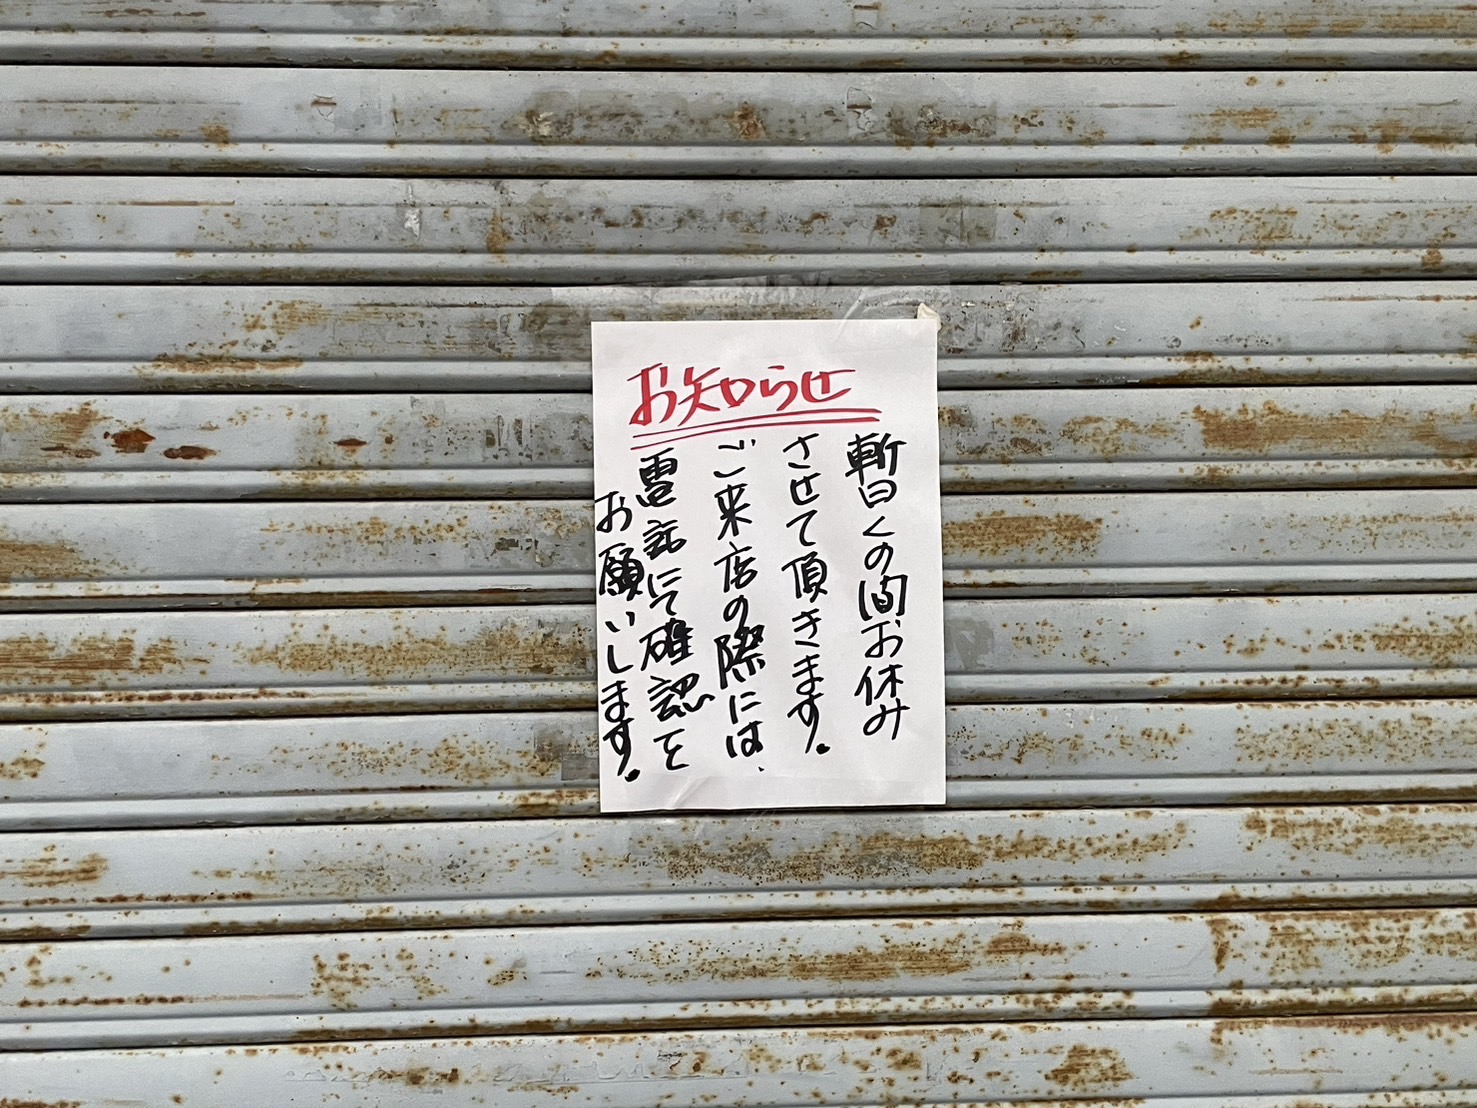 お知らせ
暫くの間お休み
させて頂きます。
ご来店の際には、
電話にて確認を
お願いします。